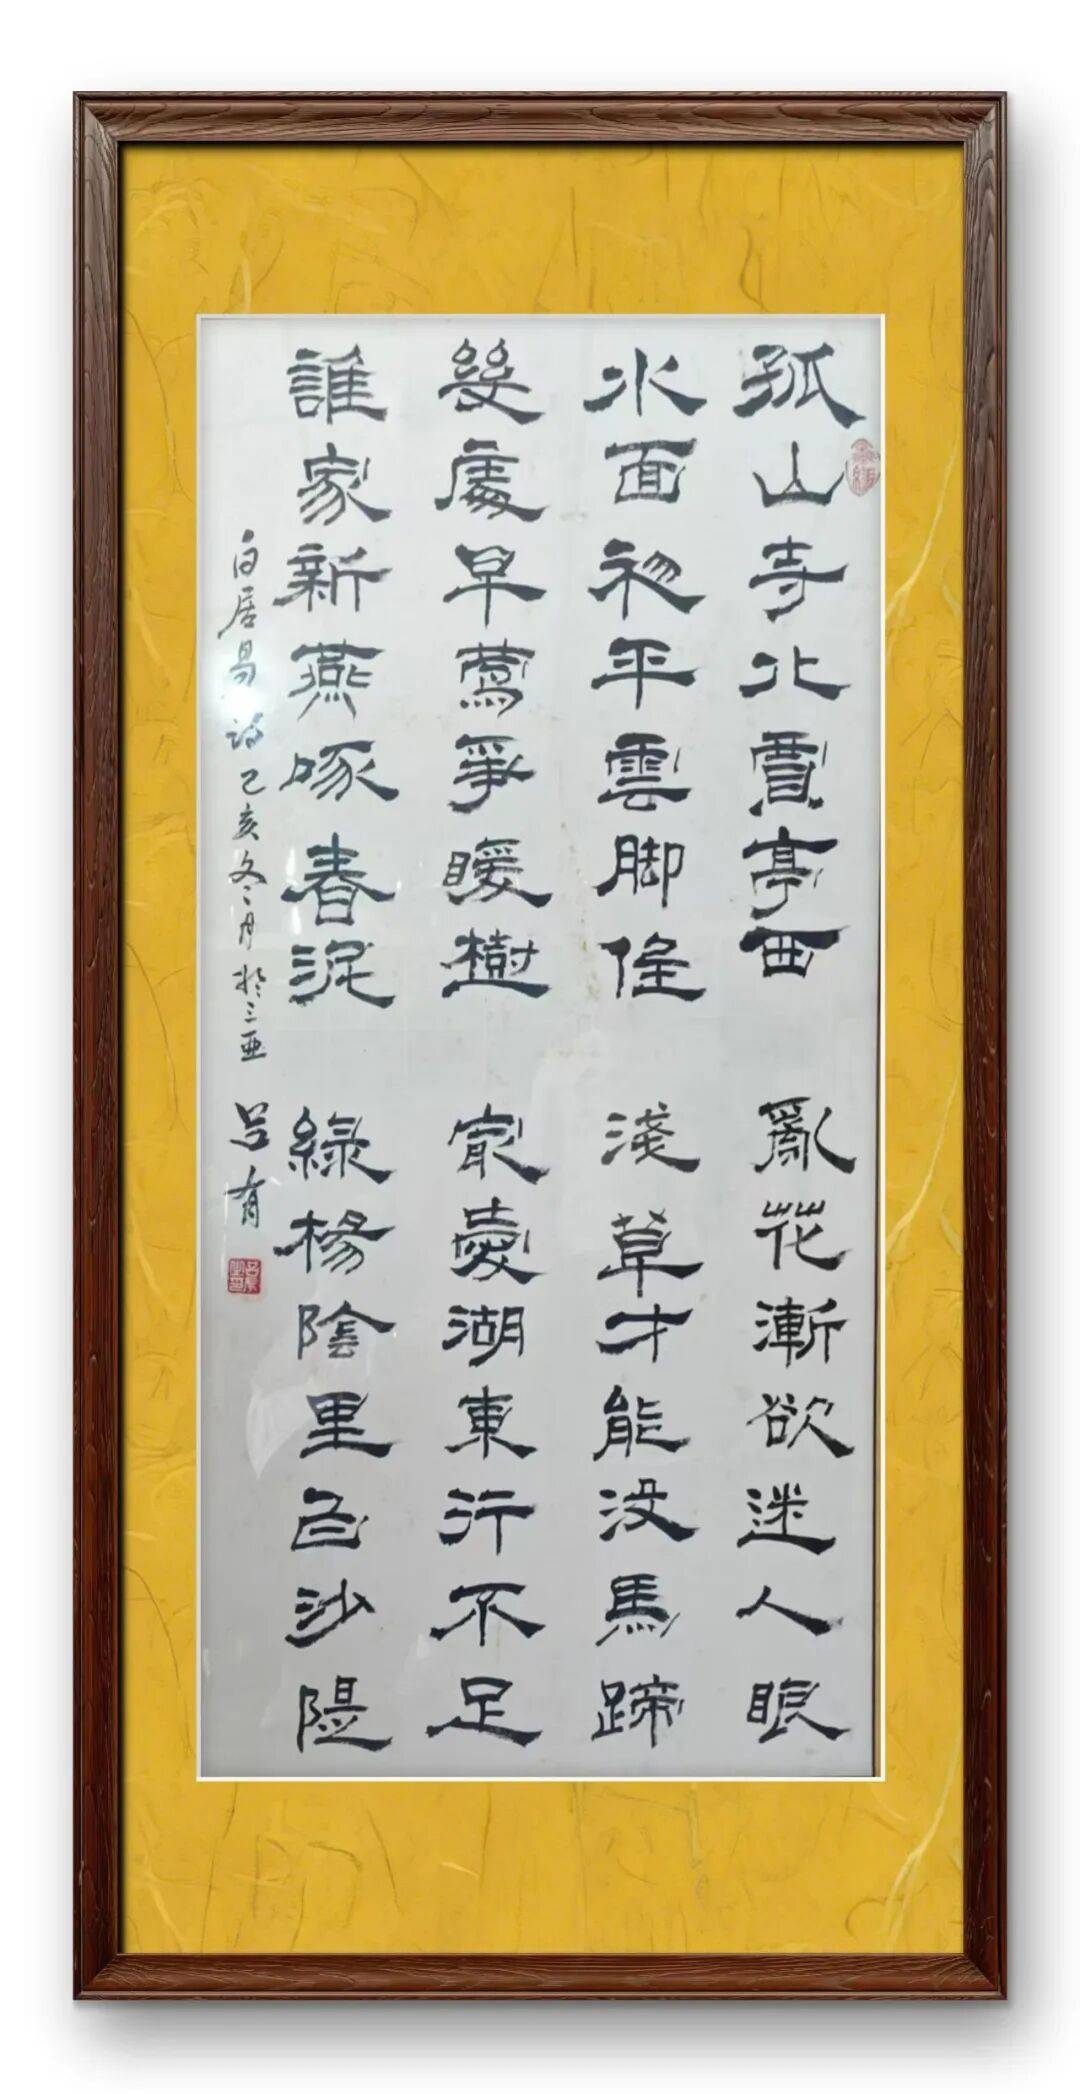 孤山寺北賈亭西
水面初平雲脚低
幾處早鶯爭暖樹
誰家新燕啄春泥
亂花漸欲迷人眼
淺草才能沒馬蹄
最愛湖東行不足
綠楊陰里白沙隄
白居易詩己亥冬月於三亞 吕